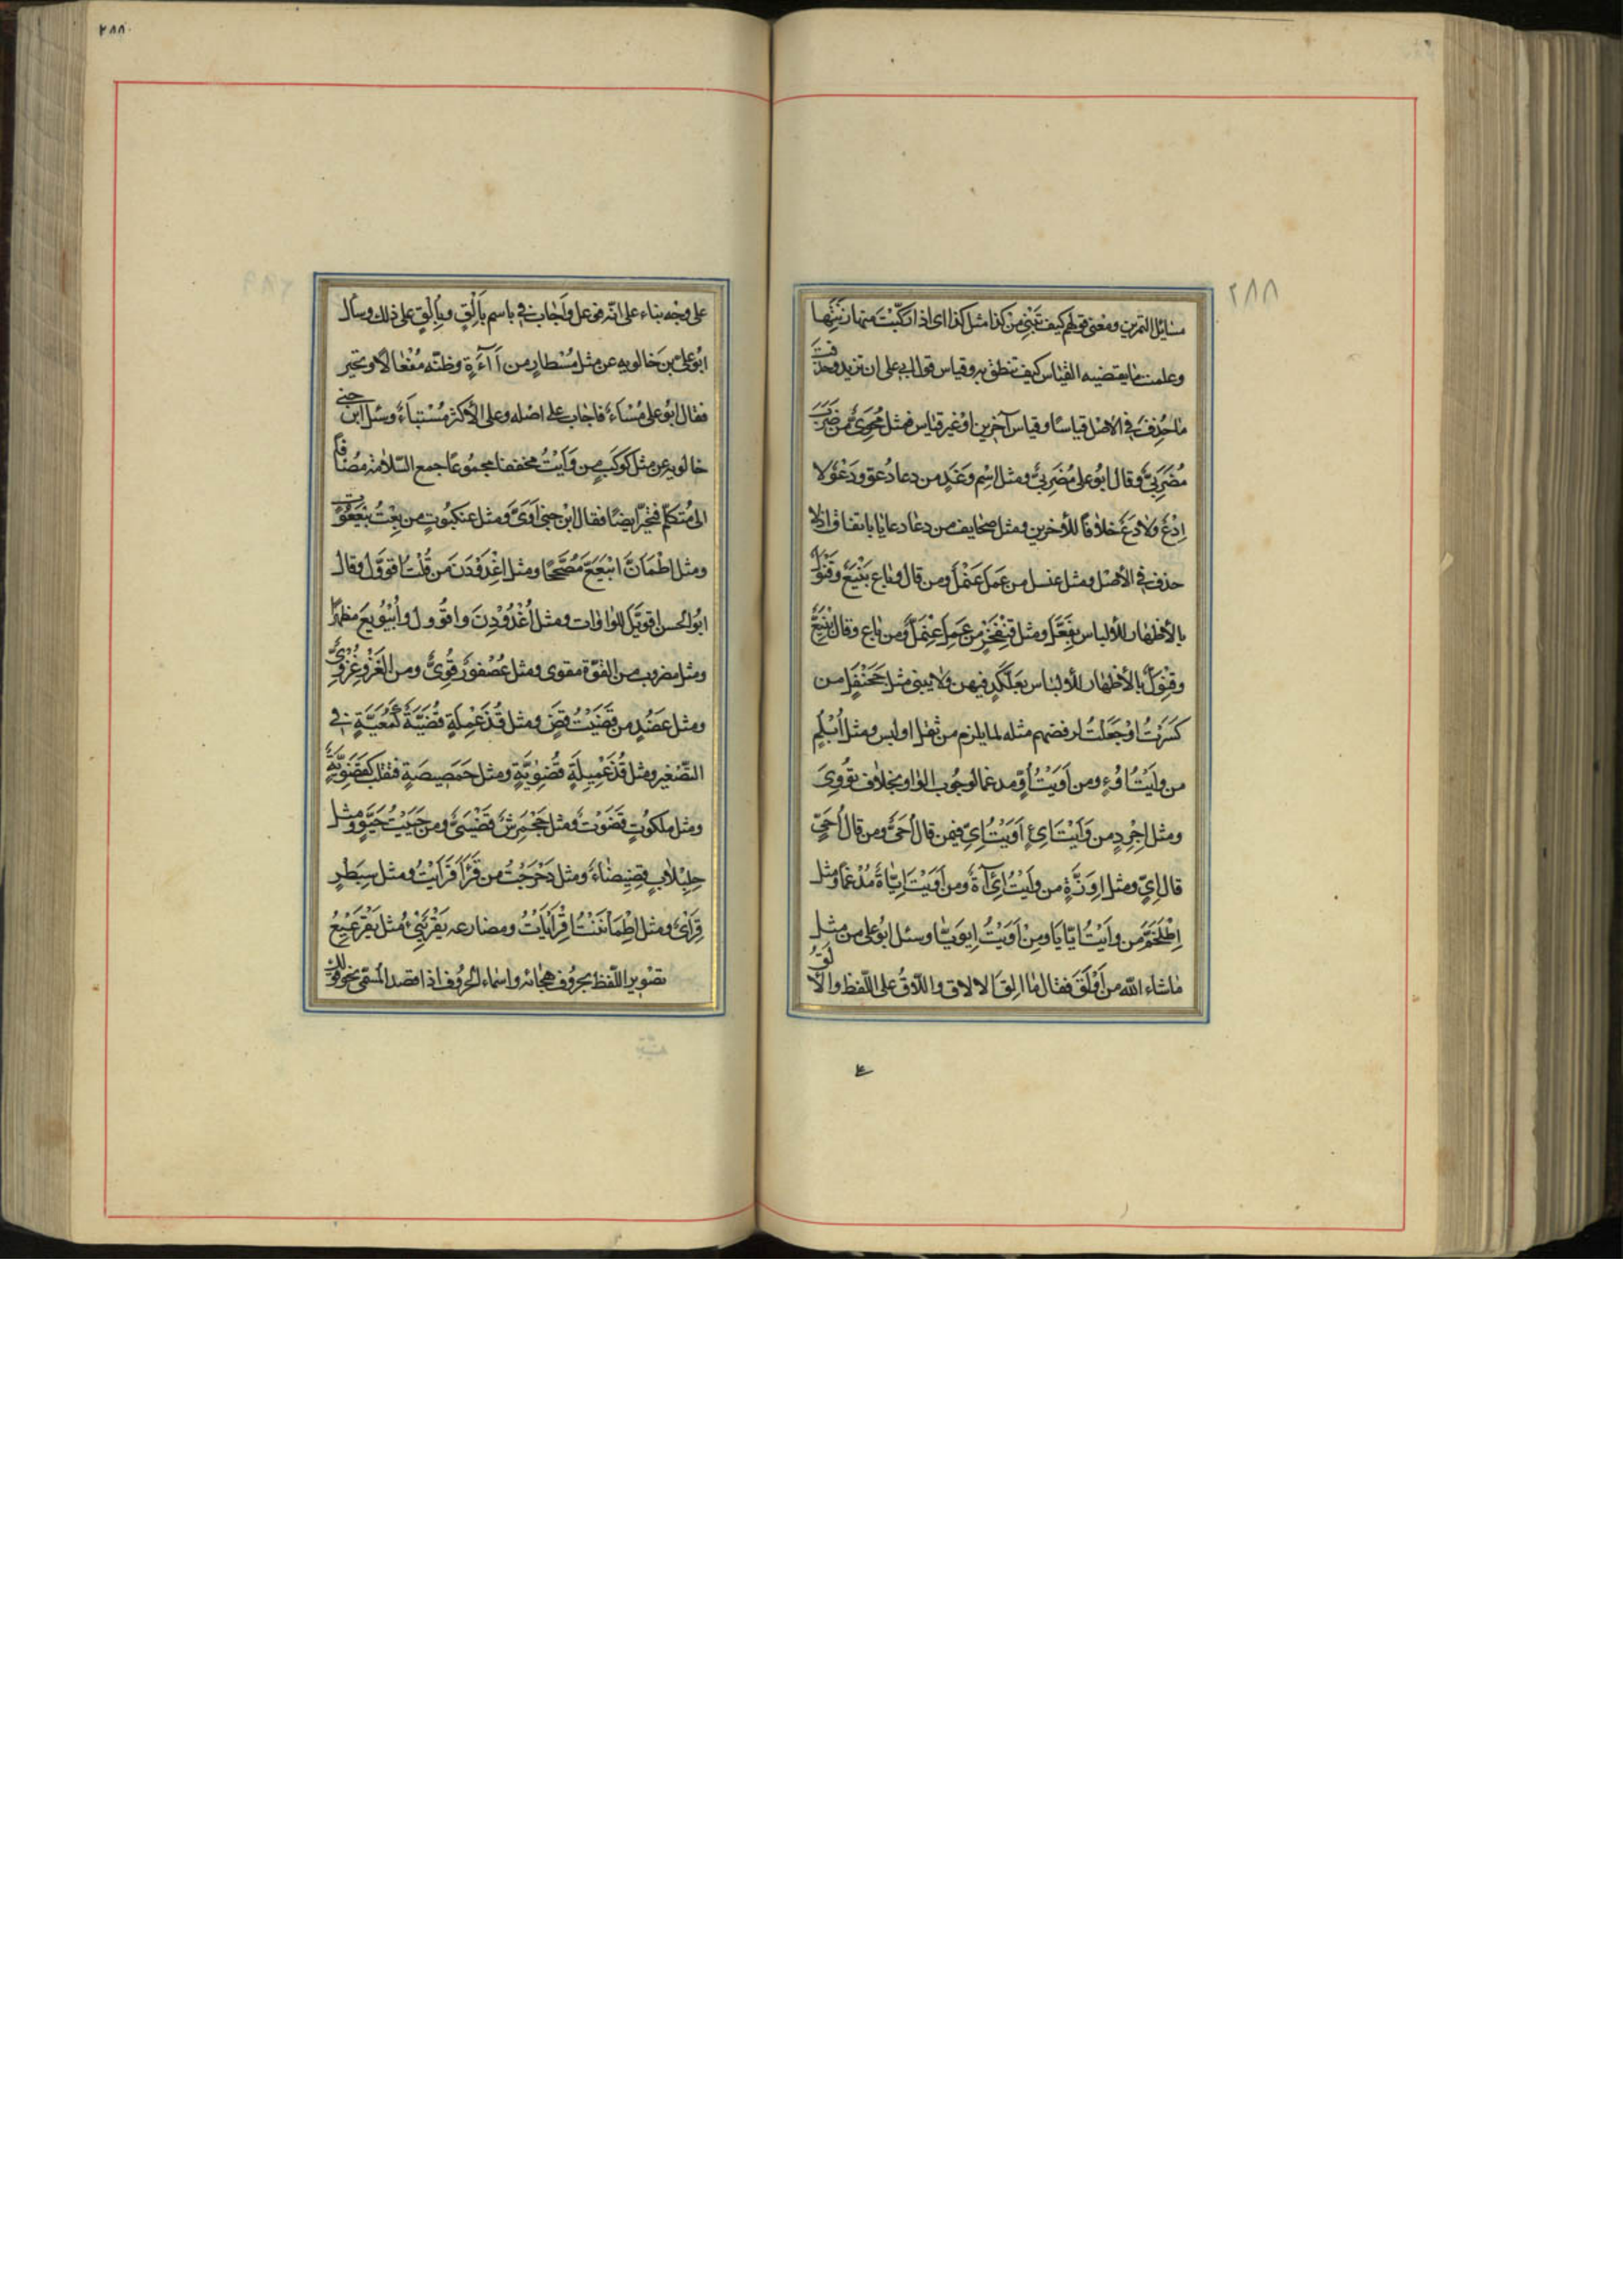 ٢٨٨
مسائل التمرين ومعنى قولهم كيف تبنى من كذا مثل كذا اى اذا ركّبت منها زنتها
وعلمت ما يقتضيه القياس كيف تنطق به وقياس قول ابى على ان تزيد وحذفت
ما حُذِفَ فى الاصل قياسًا وقياس آخرين او غير قياس فمثل مُحَوِىّ من ضَرَبَ
مُضَرِبىّ وقال ابُو على مُضَرِىّ ومثل اِسْم وغَدٍ من دعا دُعْو ودَعْو لا
اِدْع ولا دَع خلافًا للآخرين ومثل صحايف من دعا دعايا باتفاق اذ لا
حذف فى الاصل ومثل عنسل من عَمِلَ عَنْمَل ومن قال وباع بَنْيَع وقَنْوَل
بالاظهار للالباس بفَعَّل ومثل قِنْفَخْرٍ من عَمِلَ عِنْمَلّ ومن باع وقال بِنْيَعّ
وقِنْوَلّ بالاظهار للالباس بعِلَّكْدٍ فيهن ولا يبنى مثل جَحَنْفَلٍ من
كَسَرْتُ او جَعَلْتُ لرفضهم مثله لما يلزم من ثقل او لبس ومثل اُبْلُمٍ
من وأَيْتُ اُوءٍ ومن اَوَيْتُ اُوٍّ مدغما لوجُوب الواو بخلاف تُؤوِىَ
ومثل اِجْرِدٍ من وَأَيْتُ اىءٍ اَوَيْتُ اِىٍّ فيمن قال اُحَىّ ومن قال اُحَىٍّ
قال اِىٍّ ومثل اِوَزَّةٍ من وأَيْتُ اِيئَاَةٌ ومن اَوَيْتُ اِيَّاةٌ مُدْغمًا ومثل
اِطْلَخَمَّ من وأيْتُ ايّايَا ومن اَوَيْتُ اِيوَيّا وسئل ابُو على من مثل
ما شاء الله من اَوْلَقَ فقال ما اَلِقَ الالاق واللاقُ على اللّفظ والالق
٢٨٨
على وجه بناء على انه فوعل واَجاب فى باسم بِاُلْقٍ وبِاِلْقٍ على ذلك وسأل
ابُو على بن خالويه عن مثل مُسْطارٍ من اآءَةٍ وظنّه مُفْعالا وتحير
فقال ابُو على مُسْاَء فاجاب على اصله وعلى الاكثر مُسْتَاَء وسئل ابن جنى
خالويه عن مثل كوكب من وَأَيْتُ مخففا مجمُوعًا جمع السّلامة مضافا
الى متكلم فتحيّر ايضًا فقال ابن جنى اَوَىَّ ومثل عنكبُوتٍ من بِعْتُ بَيْعَعُوتٌ
ومثل اطْمَأَنَّ ابْيَعَعَّ مُصَحَّحًا ومثل اغْدَوْدَنَ من قُلْتُ اقْوَوَّلَ وقال
ابُو الحسن اقوَيَّلَ للواوات ومثل اُغْدُوْدِنَ من واقْوُووِلَ واُبْيُويِعَ مظهرًا
ومثل مضروب من القوّة مقوى ومثل عُصْفور قُوِّىٌّ ومن الغزو غُزْوِىٌّ
ومثل عَضُدٍ من قَضَيْتُ قَضٍ ومثل قُذَعْمِلَةٍ قُضَيَّةٌ كَمُعَيَّةٍ فى
التّصْغير ومثل قُذَعْمِيلَةٍ قُضَوِيَّةٍ ومثل حَمَصِيصَةٍ فقل كقضَوِيَّةٌ
ومثل ملكُوتٍ قَضَوْتٌ ومثل جَحْمَرِشٍ قَضْيَىٌ ومن حَيِيْتُ حَيَّوٌ ومثل
حِلِبْلابٍ قِضِيضَاءٌ ومثل دَحْرَجْتُ من قَرَأ قَرْأَيْتُ ومثل سِبَطْرٍ
قِرَاْىٌ ومثل اِطْمَاْنَنْتُ اِقْرَاْيَاْتُ ومضارعه يَقْرَئِيْىءُ مثل يَقْرَعِيْعُ
تصْوير اللّفظ بحروف هجائه واسماء الحرُوف اذا قصد المسمى نحو قولك